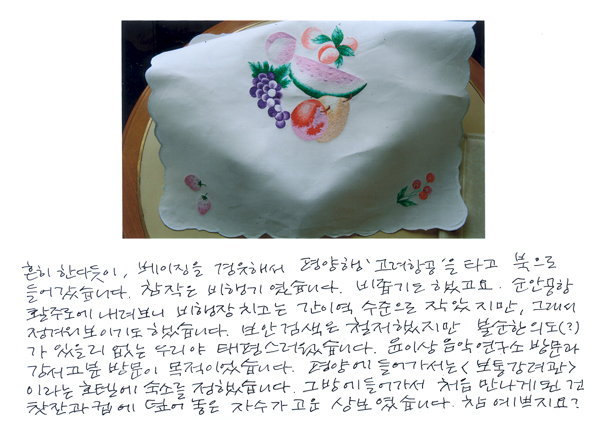 흔히 한다듯이, 베이징을 경유해서 평양행 '고려항공'을 타고 북으로
들어갔습니다. 참 작은 비행기였습니다. 비좁기도 했고요. 순안공항
활주로에 내려보니 비행장 치고는 간이역 수준으로 작았지만, 그래서
정겨워보이기도 했습니다. 보안검색은 철저했지만 불순한 의도(?)
가 있을리 없는 우리야 태평스러웠습니다. 윤이상음악연구소 방문과
강서고분 방문이 목적이었습니다. 평양에 들어가서는 <보통강려관>
이라는 호텔에 숙소를 정했습니다. 그 방에 들어가서 처음 만나게 된 건
찻잔과 컵에 덮어 놓은 자수가 고운 상보였습니다. 참 예쁘지요?